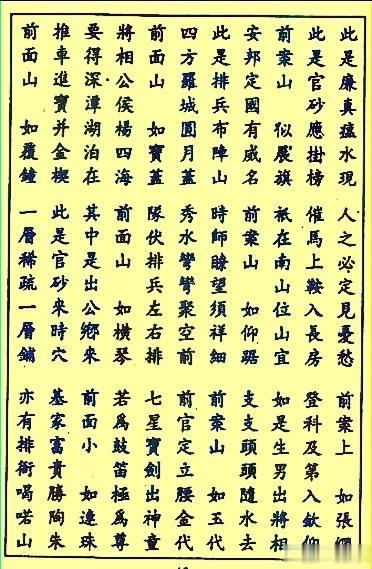 此是廉真瘟水現 人之必定見憂愁 前案上 如張網
此是官砂應掛榜 催馬上鞍入長房 登科及第入欽仰
前案山 似展旗 衹在南山位山宜 如是生男出將相
安邦定國有威名 前案山 如仰踞 支支頭頭隨水去
此是排兵布陣山 時師瞭望須祥細 前案山 如玉代
四方羅城圓月蓋 秀水彎彎聚空前 前官定立腰金代
前面山 如寶蓋 隊伏排兵左右排 七星寶劍出神童
將相公侯楊四海 前面山 如橫琴 若為鼓笛極為尊
要得深潭湖泊在 其中是出公鄉來 前面小 如連珠
推車進寶并金楔 此是官砂來時穴 墓家富貴勝陶朱
前面山 如覆鐘 一層稀疏一層鋪 亦有排衙喝喏山